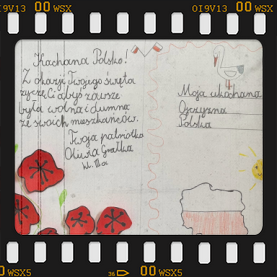 OI9V13 00 WSX OI9V13 00 WSX
Kochana Polsko!
Z okazji Twojego święta
życzę Ci abyś zawsze
była wolna i dumna
ze swoich mieszkańców.
Twoja patriotka
Oliwia
kl. III a
Moja ukochana
Ojczyzna
Polska
00 WSX5 36 00 WSX5